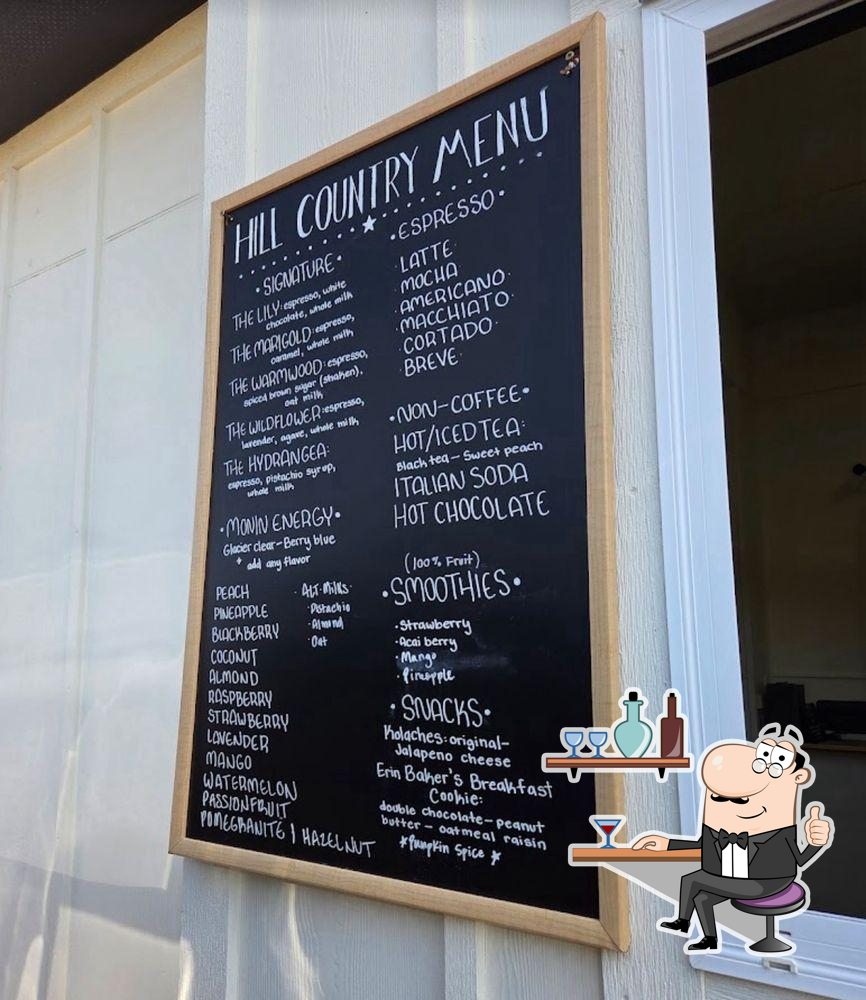 HILL COUNTRY MENU
• SIGNATURE •
THE LILY: espresso, white
chocolate, whole milk
THE MARIGOLD: espresso,
caramel, whole milk
THE WARMWOOD: espresso,
spiced brown sugar (shaken),
oat milk
THE WILDFLOWER: espresso,
lavender, agave, whole milk
THE HYDRANGEA:
espresso, pistachio syrup,
whole milk
• MONIN ENERGY •
Glacier clear - Berry blue
+ add any flavor
PEACH
PINEAPPLE
BLACKBERRY
COCONUT
ALMOND
RASPBERRY
STRAWBERRY
LAVENDER
MANGO
WATERMELON
PASSIONFRUIT
POMEGRANITE | HAZELNUT
· Alt-Milks·
·Pistachio
·Almond
·Oat
• ESPRESSO •
· LATTE ·
· MOCHA
· AMERICANO ·
· MACCHIATO ·
· CORTADO ·
· BREVE ·
• NON-COFFEE •
HOT/ICED TEA:
Black tea - Sweet peach
ITALIAN SODA
HOT CHOCOLATE
(100% Fruit)
• SMOOTHIES •
· Strawberry
· Acai berry
· Mango
· Pineapple
• SNACKS •
Kolaches: original -
Jalapeno cheese
Erin Baker's Breakfast
Cookie:
double chocolate - peanut
butter - oatmeal raisin
*Pumpkin Spice *